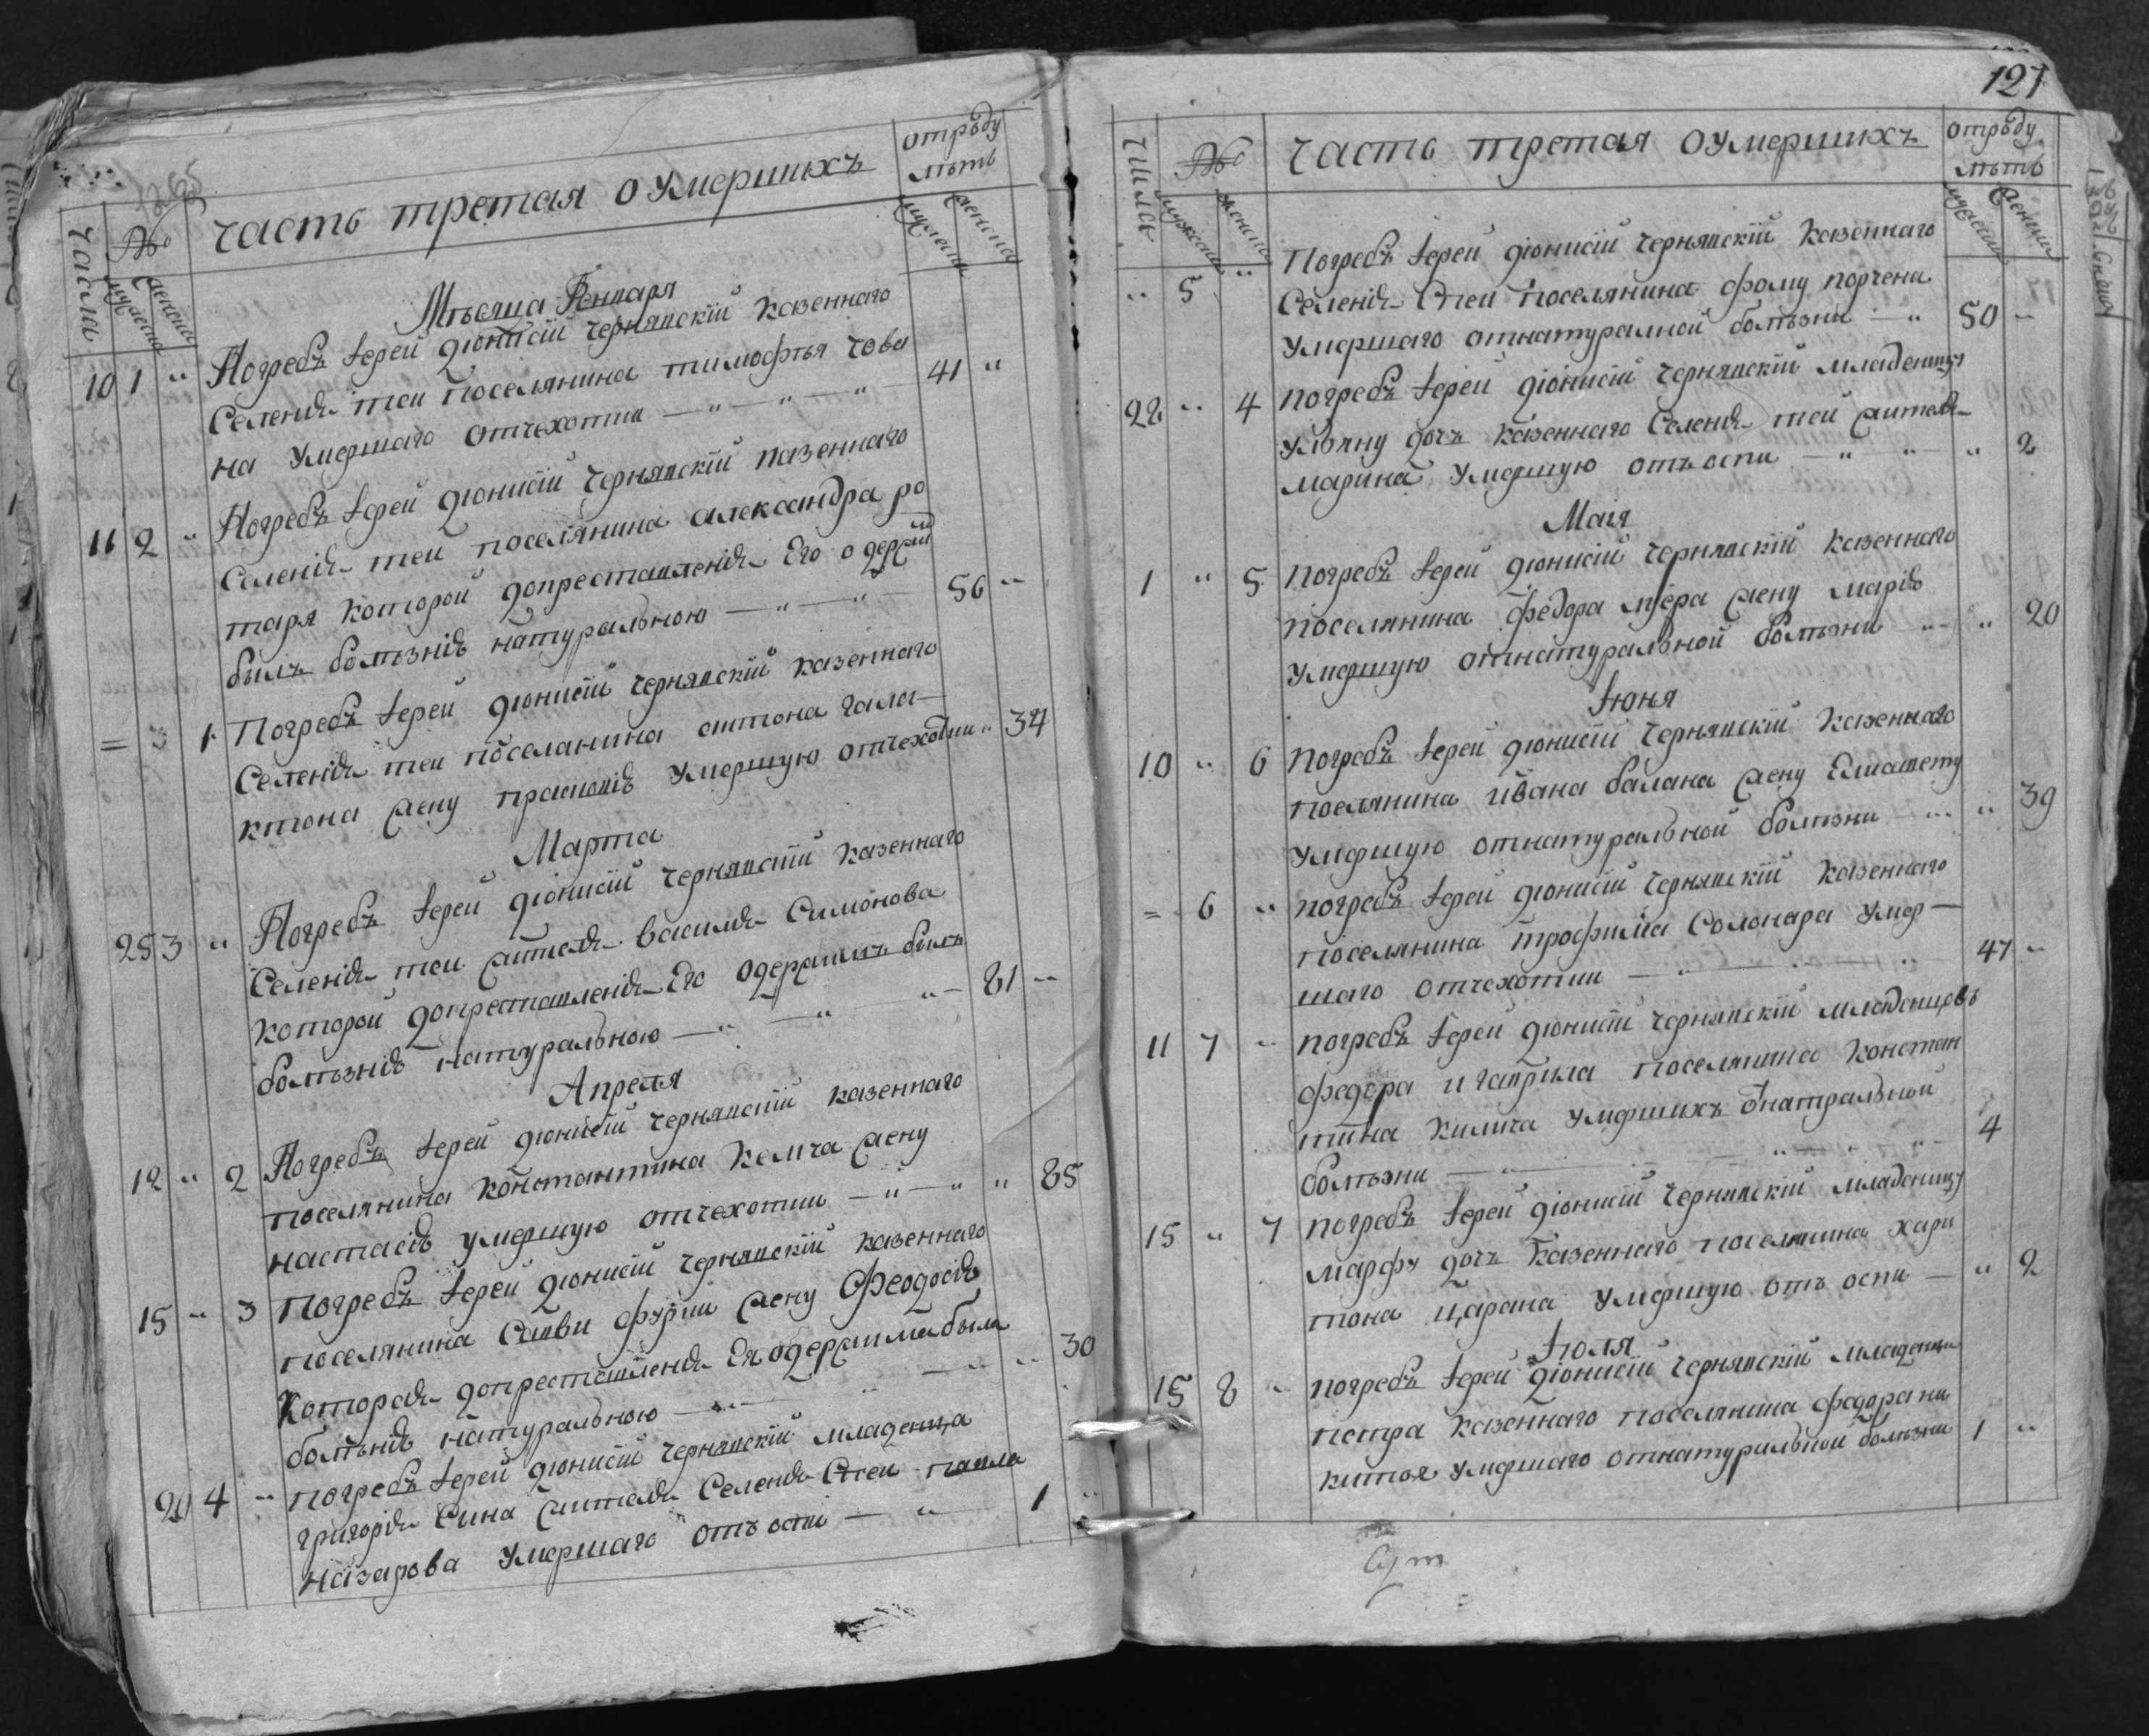 Числа № часть третая оумершихъ отрѣду
лѣтъ
мужеска женска мужеска женска
Мѣсяца Генваря
10 1 " Погребъ Іерей діонисій Чернявскій казеннаго
Селенія теи поселянина тимофѣя чова
на Умершаго отчехотки — " — " — " — 41 "
11 2 " Погребъ Іерей діонисій Чернявскій казеннаго
Селенія теи поселянина александра ро
таря которой допреставленія Его одержи
билъ болѣзнію натуральною — " — " — 56 "
= 3 1 Погребъ Іерей діонисій Чернявскій казеннаго
Селенія теи поселанина антона гала—
ктона жену прасковію умершую отчехотки " 34
Марта
25 3 " Погребъ Іерей діонисій Чернявскій казеннаго
Селенія теи жителя василія Симонова
которой допреставленія Его одержимъ билъ
болѣзнію натуральною — " — " " — 81 "
Апреля
12 " 2 Погребъ Іерей діонисій Чернявскій казеннаго
поселянина константина келча жену
настасію умершую отчехотки — " — " " 85
15 " 3 Погребъ Іерей діонисій Чернявскій казеннаго
поселянина Савви фурни жену Феодосію
Которая допреставленія Ея одержима била
болѣзнію натуральною — " — " 30
20 4 " погребъ Іерей діонисій Чернявскій младенца
григорія Сина жителя Селенія Стеи павла
назарова умершаго отъ оспи — " 1 "
127
Числа № часть третая оумершихъ отрѣду
лѣтъ
мужеска женска мужеска женска
" 5 " Погребъ Іерей діонисій Чернявскій казеннаго
Селенія Стеи поселянина фому порчена
умершаго отнатуралной болѣзни — " 50 "
22 " 4 погребъ Іерей діонисій Чернявскій младеницу
ульяну дочъ казеннаго Селенія теи жителя
марина умершую отъ оспи — " " " 2
Маія
1 " 5 погребъ Іерей діонисій Чернявскій казеннаго
поселянина федора жену марію
умершую отнатуральной болѣзни " " 20
Іюня
10 " 6 погребъ Іерей діонисій Чернявскій казеннаго
поелянина ивана балана жену Елисавету
умершую отнатуральной болѣзни " " 39
= 6 " погребъ Іерей діонисій Чернявскій казеннаго
поселянина трофима Солонара умер—
шаго отчехотки — " — " 47 "
11 7 " погребъ Іерей діонисій Чернявскій младенцовъ
федора и гаврила поселянина констан
тина килича умершихъ отнатральной
болѣзни — " — " " — 4
15 " 7 погребъ Іерей діонисій Чернявскій младеницу
марфу дочъ казеннаго поселянина хари
тона царана умершую отъ оспи — " 2
Іюля
15 8 " погребъ Іерей діонисій Чернявскій младенца
петра казеннаго поселянина федора ни
китоя умершаго отнатуральной болѣзни 1 "